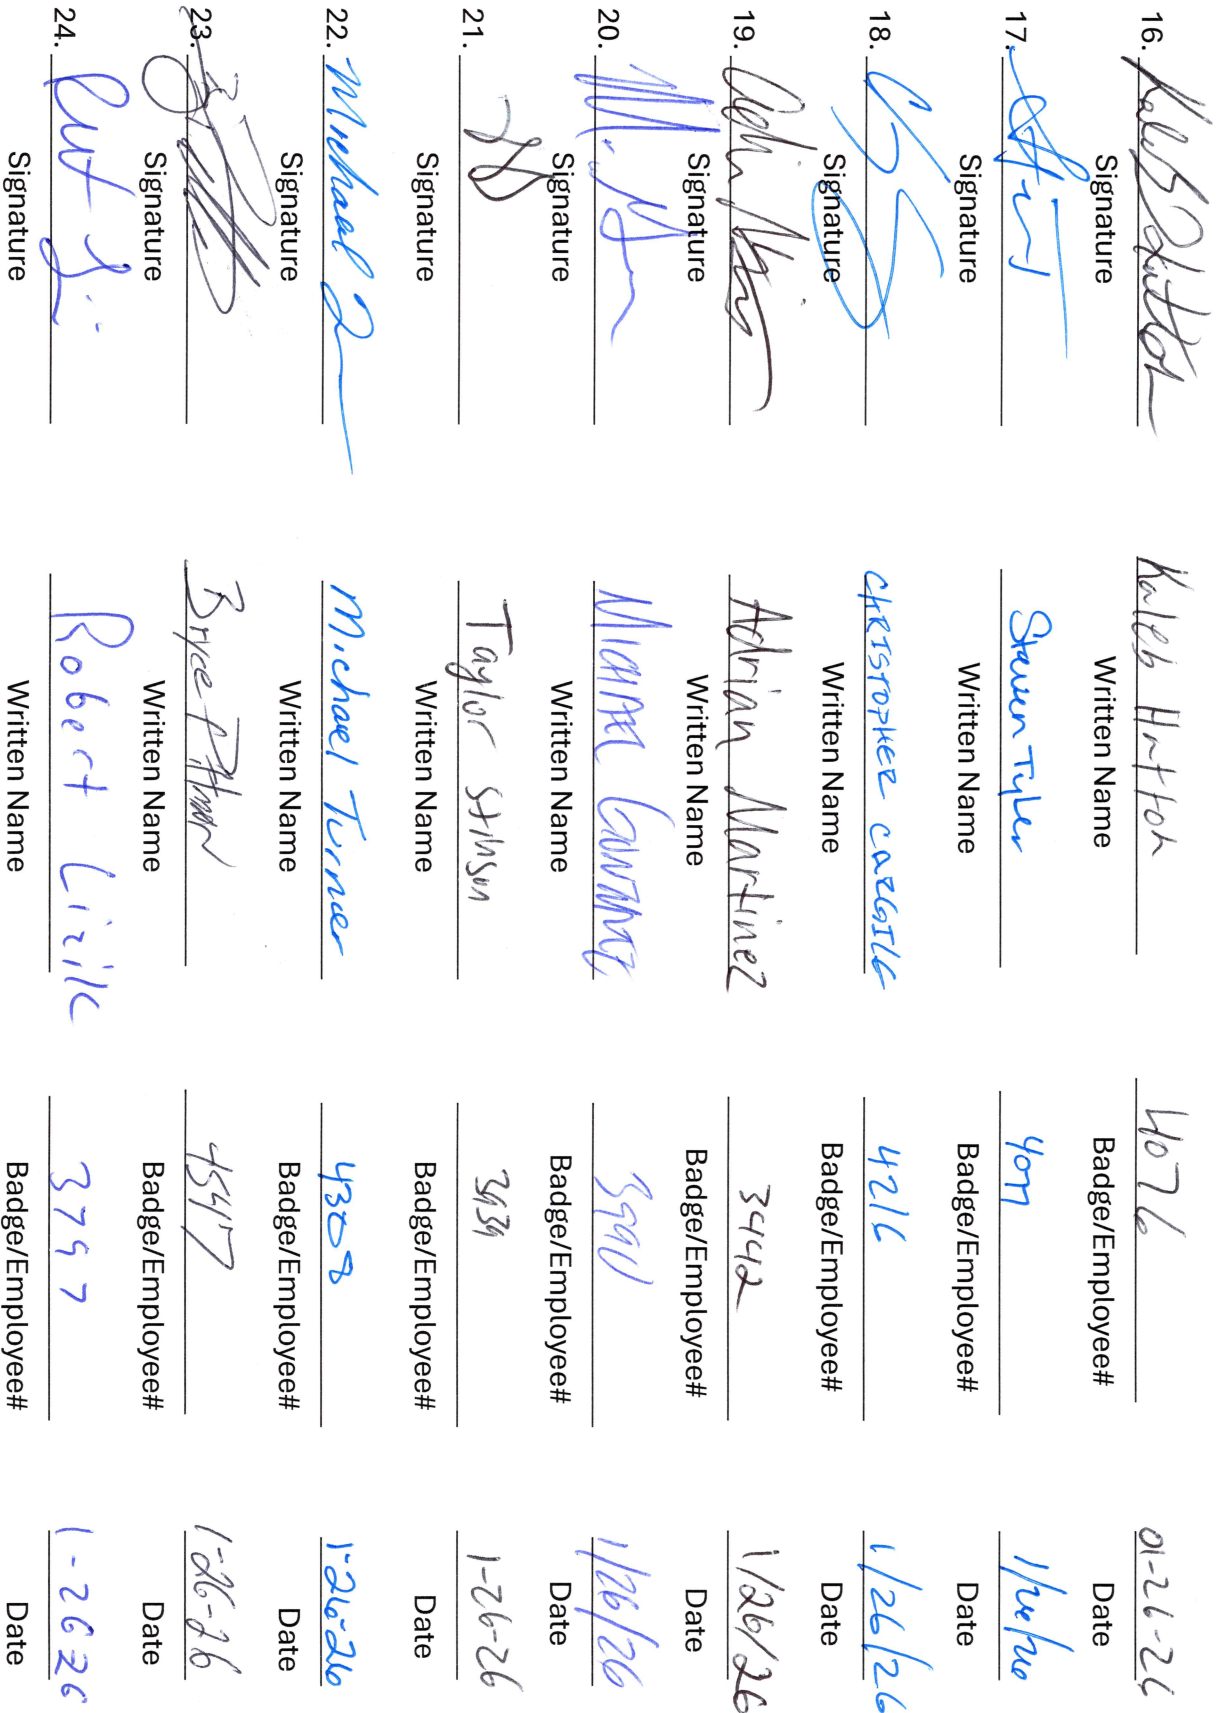 16. Kaleb Hutton 4076 01-26-26
Signature Written Name Badge/Employee# Date
17. Steven Tyler 4077 1/26/26
Signature Written Name Badge/Employee# Date
18. CHRISTOPHER CARGILL 4216 1/26/26
Signature Written Name Badge/Employee# Date
19. Adrian Martinez 3442 1/26/26
Signature Written Name Badge/Employee# Date
20. 1/26/26
Signature Written Name Badge/Employee# Date
21. Taylor Stinson 1-26-26
Signature Written Name Badge/Employee# Date
22. Michael Michael Turner 4308 1-26-26
Signature Written Name Badge/Employee# Date
23. Bryce Pittman 4547 1-26-26
Signature Written Name Badge/Employee# Date
24. Robert 3797 1-26 26
Signature Written Name Badge/Employee# Date